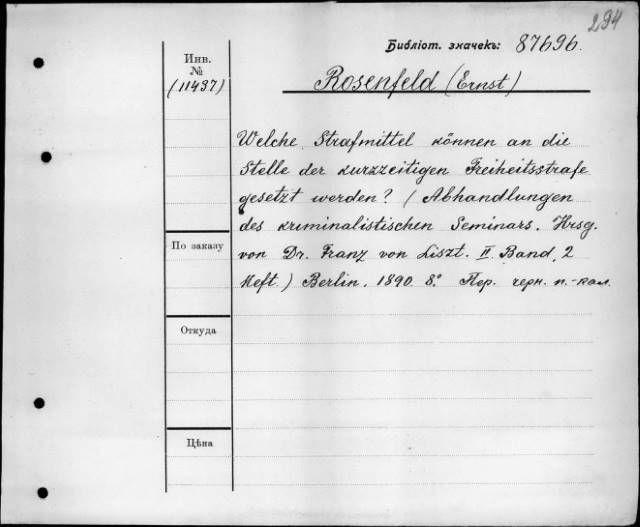 294
Библіот. значекъ: 87696.
Инв.
№
(11437)
Rosenfeld (Ernst)
Welche Strafmittel können an die
Stelle der kurzzeitigen Freiheitsstrafe
gesetzt werden? (Abhandlungen
des kriminalistischen Seminars. Hrsg.
von Dr. Franz von Liszt. II Band, 2
Heft.) Berlin. 1890. 8.° Пер. черн. п.-кал.
По заказу
Откуда
Цѣна